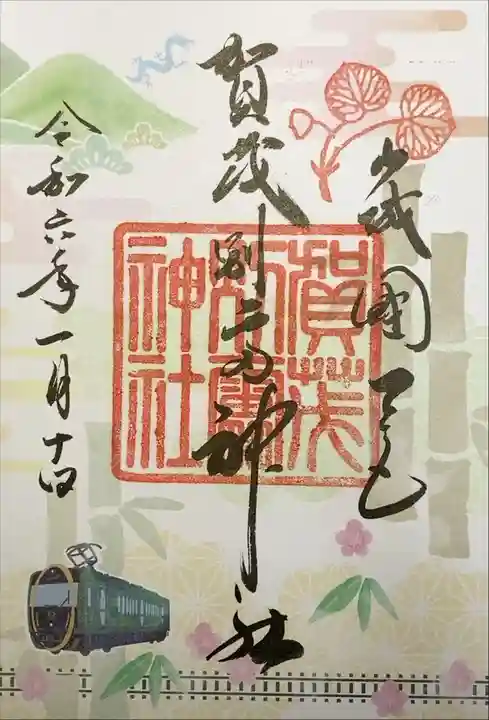 山城國一之宮
賀茂別雷神社
賀茂別雷神社
令和六年一月十四